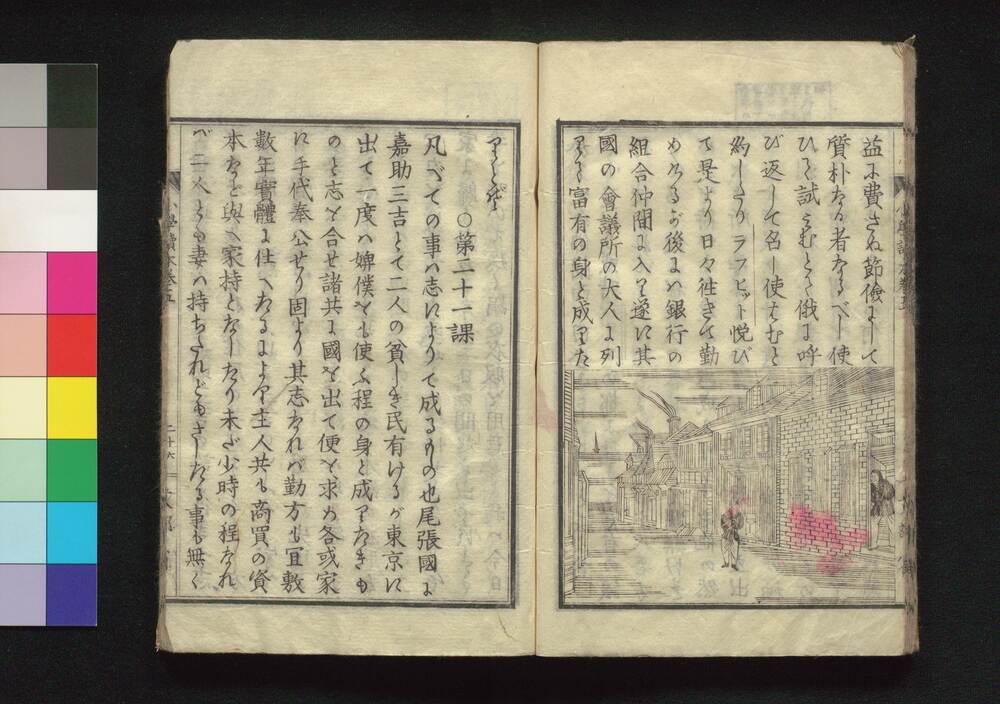 益に費さぬ節儉にして
質朴なる者なるべし使
ひて試むとて俄に呼
び返して名し使はむと
約したりラフヒット悦び
て是より日々往きて勤
めけるが後には銀行の
組合仲間に入りて遂に其
國の會議所の大人に列
りて富有の身と成りた
りとぞ
○第二十一課
凡べての事は志によりて成るもの也尾張國に
嘉助三吉とて二人の貧しき民有けるが東京に
出て一度は婢僕をも使ふ程の身と成りたきも
のと志を合せ諸共に國を出て便を求め各或家
に手代奉公せり固より其志なれば勤方も宜敷
數年實體に仕へたるにより主人共も商買の資
本など與へ家持となしたり未だ少時の程なれ
ば二人とも妻は持ちたれどもさしたる事も無く
小學讀本卷五
二十六